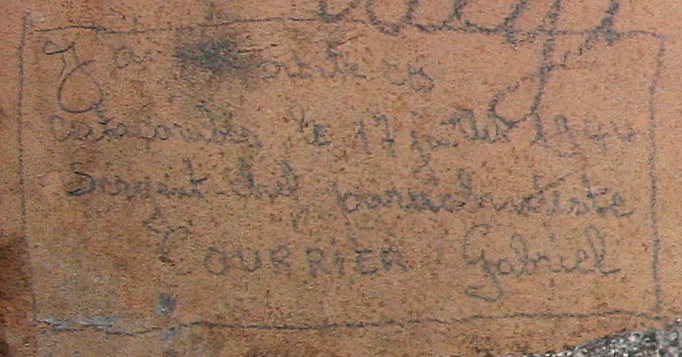 J'ai visité ces
catacombes le 17 juillet 1944
Sergent-chef parachutiste
FOURRIER Gabriel